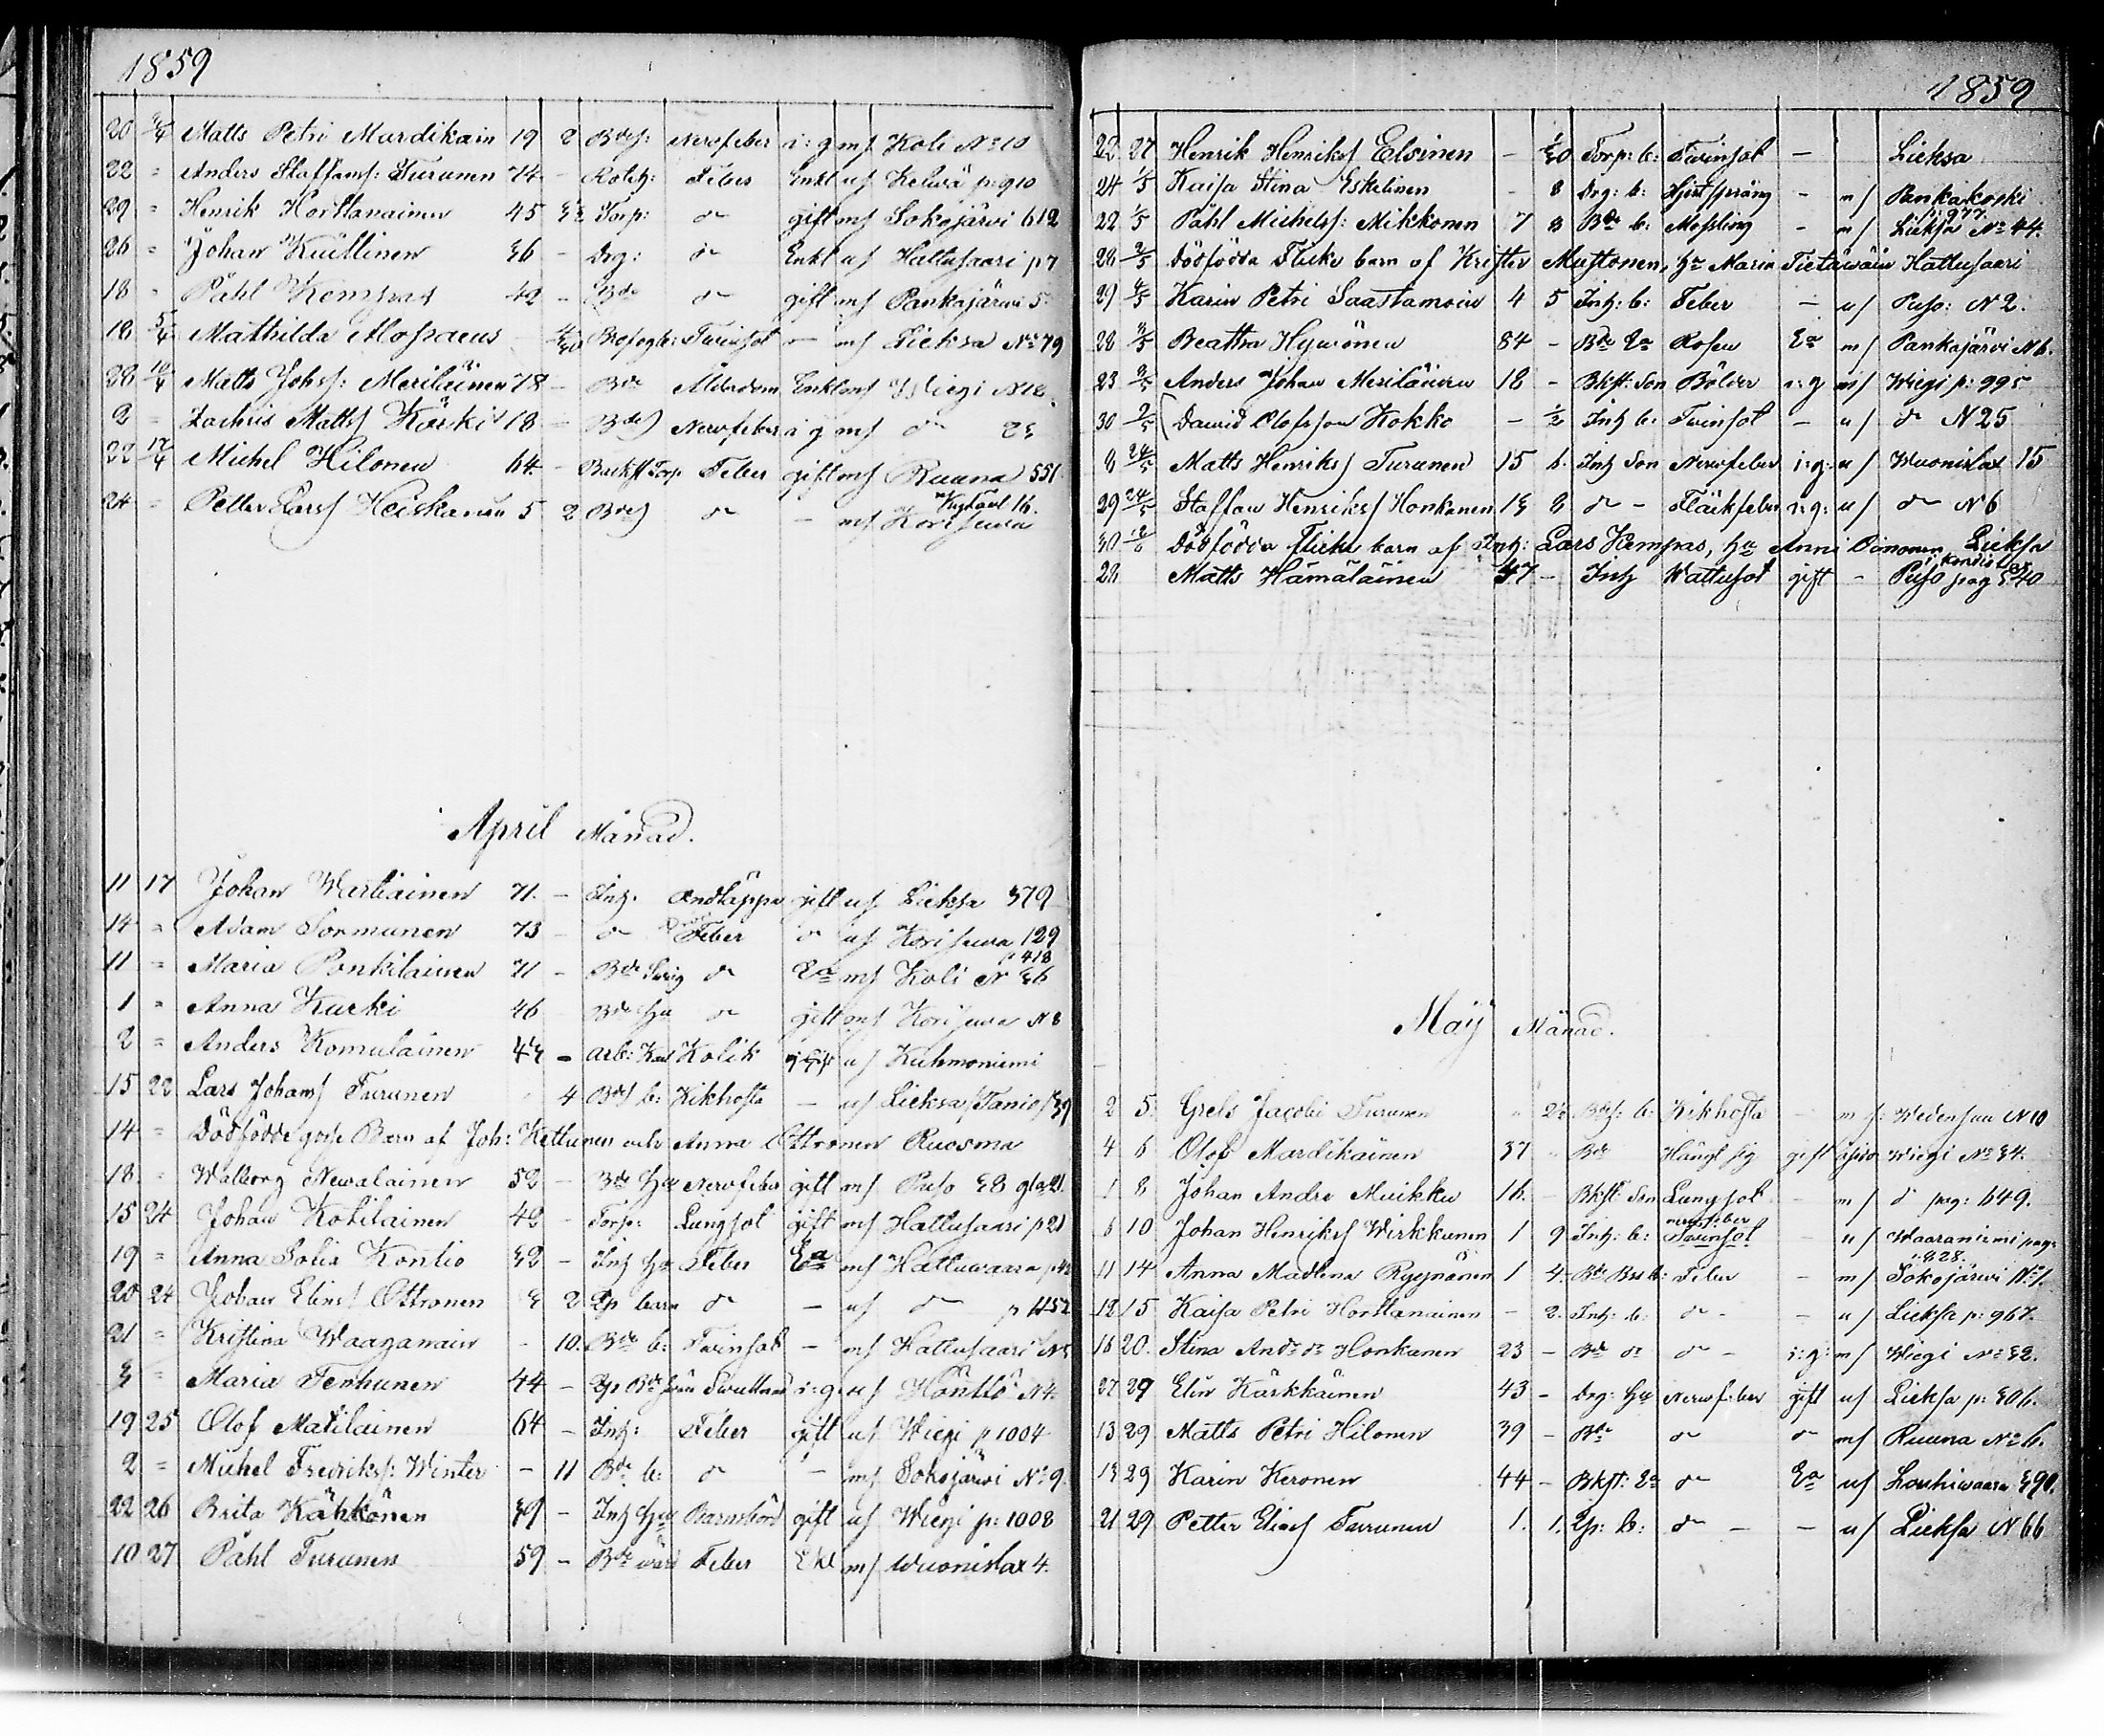 1859
20 Matts Petri Mardikain 19 2 Bdes: Nervfeber i: g ms Koli No 10
22 = Anders Staffans: Turunen 74 - Roteh: Feber Enkl us Kelwä p: 910
29 = Henrik Horttanainen 45 Torp: do gift ms Sokojärvi 612
26 = Johan Kuittinen 36 - Drg: do Enkl us Hattusaari p 7
18 = Påhl Kempas 42 - Bde do gift ms Pankajärwi 5
18 5/4 Mathilda Mossaeus Twinsot - ms Lieksa No 79
28 10/4 Matts Johss: Meriläinen 78 - Bde Ålderdom Enkl ms Wiegi N 18
2 = Zachris Matts Kärki 18 - Bdes Nervfeber i g ms do 23
22 17/4 Michel Hilonen 64 - Backst Torp Feber gift ms Ruuna 551
24 = Petter Larss Heiskanen 5 2 Bdes do - ms Korisewa
April Månad.
11 17 Johan Wartiainen 71. - Inh. Andtäppa gift us Lieksa 379
14 = Adam Sormunen 73 - do Feber do us Korisewa 129
p 418
11 = Maria Ponkilainen 71 - Bde do Ea ms Koli N 36
1 = Anna Kurki 46 Bde hu do gift ms Korisewa N 8
2 = Anders Komulainen 43 - Arb: Karl Kolik us Kuhmoniemi
15 22 Lars Johans Turunen 4 Bds b: Kikhosta - us Lieksa /Tanio/ 39
14 = Dödfödde gosse Barn af Joh: Kettunen och Anna Ottronen Ruosma
18. = Walborg Newalainen 52 - Bde hu Nervfeber gift ms Puso 38
15 24 Johan Kotilainen 42 - Torp: Lungsot gift ms Hattusaari p 21
19 = Anna Sofia Kontio 32 - Inh hu Feber Ea ms Hattuwaara
20 24 Johan Elins Ottronen 3 2 Lp barn do - us do p 1152
21 = Kristina Waaganain - 10. Bde b: Twinsot - ms Hattusaari N 5
3 = Maria Tenhunen 44 - Lp Bde i: g us Hönttö N 4.
19 25 Olof Matilainen 64 - Inh: Feber gift us Wiegi p 1004
2 = Michel Fredrikss: Winter - 11 Bde b: do - ms Sokojärwi No 9.
22 26 Brita Kähkönen 39 - Inh hu Barnsbörd gift us Wiegi p: 1008
10 27 Påhl Turunen 59 - Bde Feber Ekl ms Wuonislax 4.
1859
22 27 Henrik Henrikss Elsinen - 1/30 Torp: b: Twinsot - Lieksa
24 1/5 Kaisa Stina Eskelinen - 8 Drg: b: - ms Pankakoski
p: 977.
22 1/5 Påhl Michelss: Mikkonen 7 8 Bde b: Messling - ms Lieksa No 44.
28 2/5 Dödfödda Flicke barn af Krister Mustonen, hu Maria Tietäwäin Hattusaari
29 4/5 Karin Petri Saastamoin 4 5 Inh: b: Feber - us Puso: N 2.
28 Beatha Hywönen 84 - Bde Ea Rosen Ea ms Pankajärvi N 6.
23 Anders Johan Meriläinen 18 - Bkst: Son Bölder i: g ms Wiegi p: 995
30 Dawid Olofsson Kokko - 1/2 Inh b: Twinsot - us do N 25
8 24/5 Matts Henrikss Turunen 15 6. Inh Son Nervfeber i: g: us Wuonislax 15
29 24/5 Staffan Henrikss Honkanen 13 8 do - Fläckfeber i: g: us do N 6
30 Dödfödda Flicka barn af Inh: Lars Kempas, hu Anni Oinonen Lieksa
28 Matts Hämäläinen 47 - Inh Wattusot gift - Puso pag 340
Maij Månad.
2 5. Grels Jacobi Turunen Bds: b: Kikhosta - ms: Wedensuu N 10
4 6 Olof Mardikainen 37 Bde Hängt sig gift Wiegi No 34.
1 8 Johan Andrs Muikku 16. - Bkst: Son Lungsot - ms do pag: 649.
nervfeber
6 10 Johan Henrikss Wirkkunen 1 9 Inh: b: Twinsot - us Waaraniemi pag:
828.
11 14 Anna Madlena Ryynänen 1 4 Bde b: Feber - ms Sokojärwi No 1.
12 15 Kaisa Petri Horttanainen - 2. Inh: b: do - - us Lieksa p: 967.
16 20. Stina And: dr Honkanen 23 - Bde dr do - i: g: ms Wiegi No 32.
27 29 Elin Kärkkäinen 43 - Drg: hu Nervfeber gift us Lieksa p: 306.
13 29 Matts Petri Hilonen 39 - Bde do do ms Ruuna No 6.
13 29 Karin Keronen 44 - Bkst: Ea do Ea us Louhiwaara 390.
21 29 Petter Elias Turunen 1. 1. Lp: b: do - - us Lieksa N 66